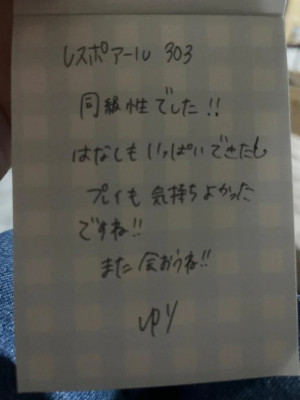 レスポアール 303
同級性でした!!
はなしもいっぱいできたし
プレイも気持ちよかった
ですね!!
また会おうね!!
ゆり